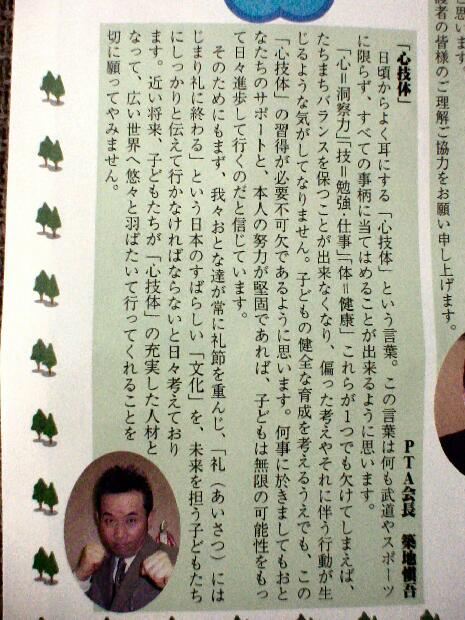 護者の皆様のご理解ご協力をお願い申し上げます。
「心技体」
PTA会長 築地愼吾
日頃からよく耳にする「心技体」という言葉。この言葉は何も武道やスポーツ
に限らず、すべての事柄に当てはめることが出来るように思います。
「心＝洞察力」「技＝勉強・仕事」「体＝健康」これらが１つでも欠けてしまえば、
たちまちバランスを保つことが出来なくなり、偏った考えやそれに伴う行動が生
じるような気がしてなりません。子どもの健全な育成を考えるうえでも、この
「心技体」の習得が必要不可欠であるように思います。何事に於きましてもおと
なたちのサポートと、本人の努力が堅固であれば、子どもは無限の可能性をもっ
て日々進歩して行くのだと信じています。
そのためにもまず、我々おとな達が常に礼節を重んじ、「礼（あいさつ）には
じまり礼に終わる」という日本のすばらしい「文化」を、未来を担う子どもたち
にしっかりと伝えて行かなければならないと日々考えており
ます。近い将来、子どもたちが「心技体」の充実した人材と
なって、広い世界へ悠々と羽ばたいて行ってくれることを
切に願ってやみません。